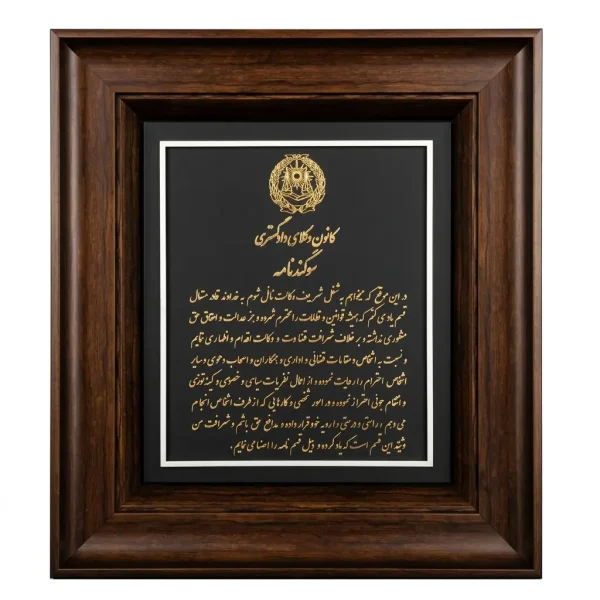 کانون وکلای دادگستری
سوگندنامه
در این موقع که میخواهم به شغل شریف وکالت نائل شوم به خداوند قادر متعال
قسم یاد می کنم که همیشه قوانین و نظامات را محترم شمرده و جز عدالت و احقاق حق
منظوری نداشته و بر خلاف شرافت قضاوت و وکالت اقدام و اظهاری ننمایم
و نسبت به اشخاص و مقامات قضائی و اداری و همکاران و اصحاب دعوی و سایر
اشخاص احترام را رعایت نموده و از اعمال نظریات سیاسی و خصوصی و کینه توزی
و انتقام جوئی احتراز نموده و در امور شخصی و کارهایی که از طرف اشخاص انجام
می دهم ، راستی و درستی را رویه خود قرار داده و مدافع حق باشم و شرافت من
وثیقه این قسم است که یاد کرده و ذیل قسم نامه را امضا می نمایم.